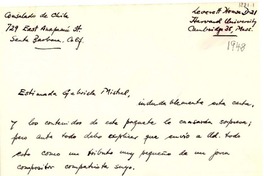 Consulado de Chile
729 East Anapamu St.
Santa Barbara, Calif.
Leverett House D-21
Harvard University
Cambridge 38, Mass.
1948
Estimada Gabriela Mistral,
indudablemente esta carta,
y los contenidos de este paquete le causarán sorpresa;
pero ante todo debo explicar que envío a Ud. todo
esto como un tributo muy pequeño de un joven
compositor compatriota suyo.